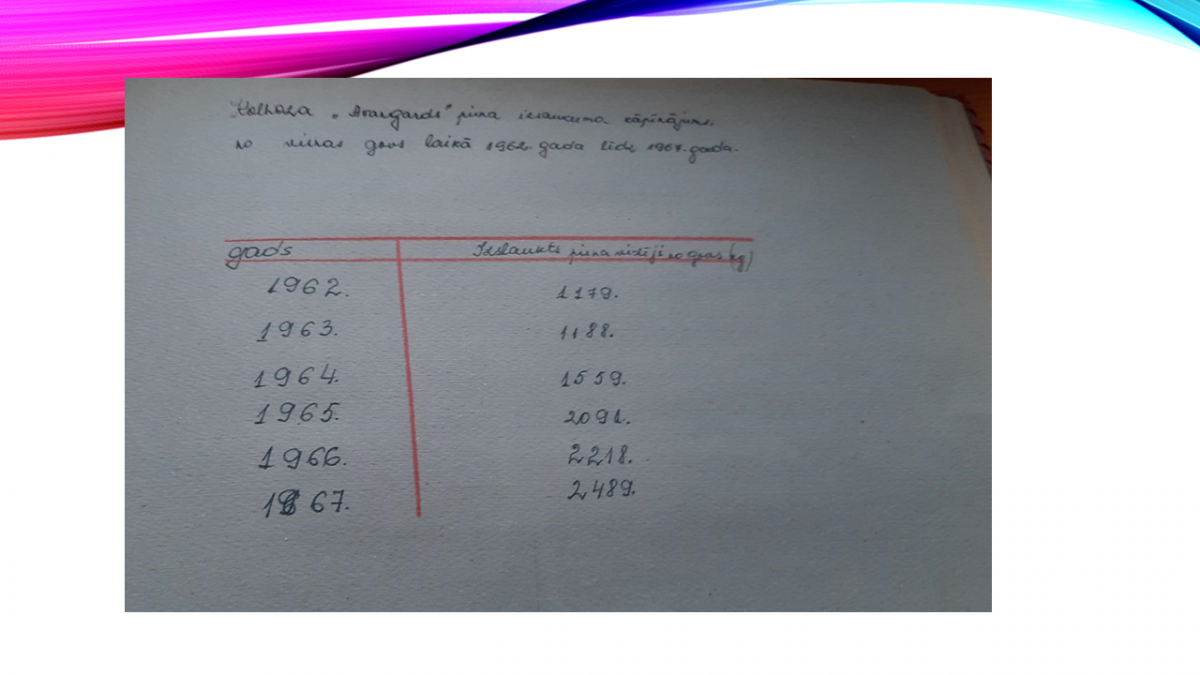 Kolhoza „Avangards" piena izslaukuma kāpinājums.
no vienas govs laikā 1962. gada līdz 1967. gada.
gads Izslaukts piena vidēji no govs (kg)
1962. 1179.
1963. 1188.
1964. 1559.
1965. 2091.
1966. 2218.
1967. 2489.